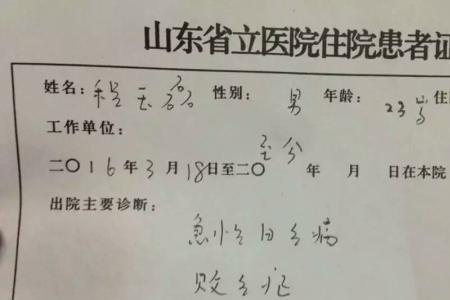 山东省立医院住院患者证
姓名：程玉磊 性别：男 年龄：23岁 住
工作单位：
二〇16年3月18日至二〇至今年 月 日在本院
出院主要诊断：
急性白血病
败血症